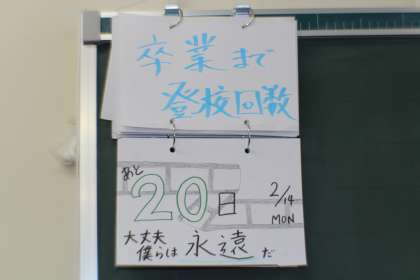 卒業まで
登校回数
あと
20日
2/14
MON
大丈夫
僕らは永遠だ